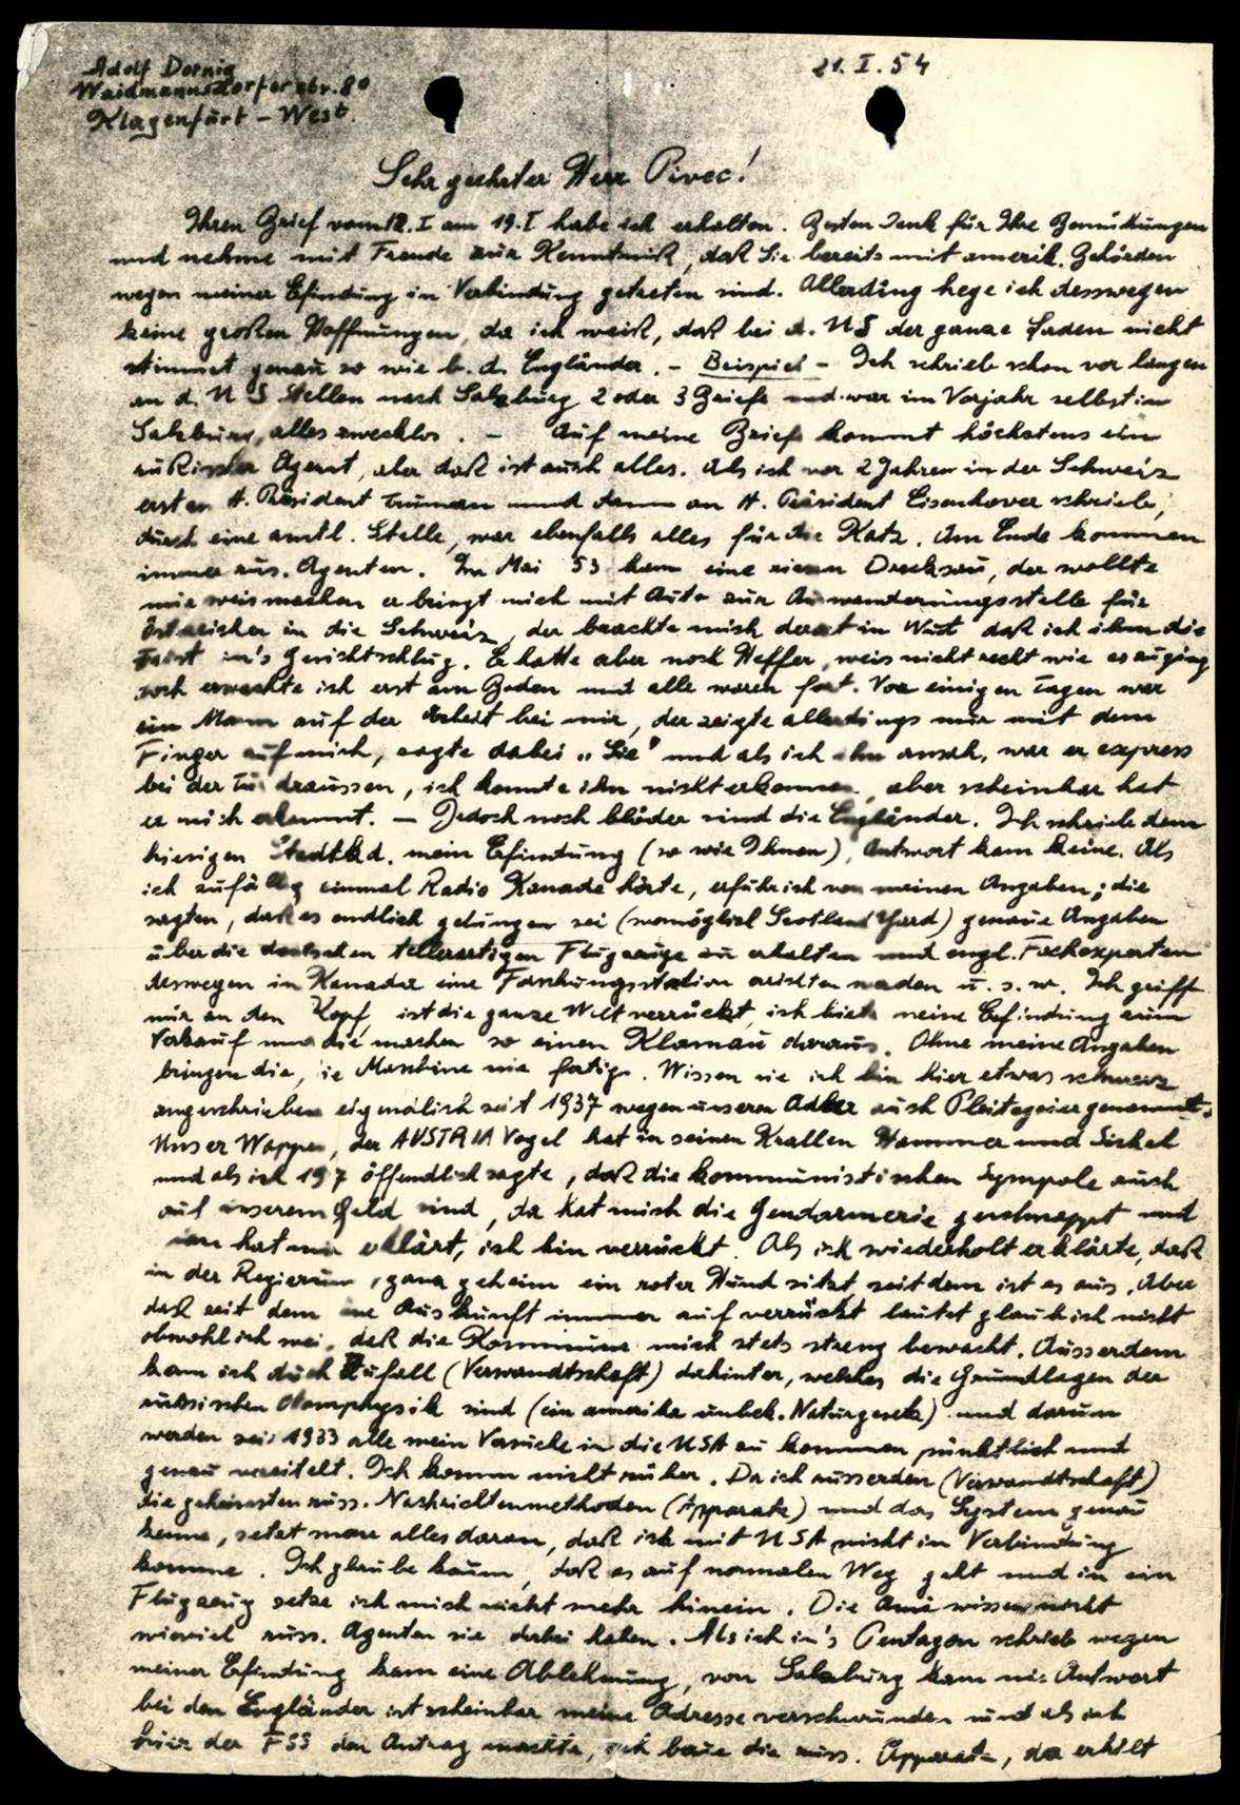 Adolf Dornig
Waidmannsdorferstr. 80
Klagenfurt - West.
21. I. 54
Sehr geehrter Herr Pivec!
Ihren Brief vom 12. I am 19. I habe ich erhalten. Besten Dank für Ihre Bemühungen
und nehme mit Freude zur Kenntniß, daß Sie bereits mit amerik. Behörden
wegen meiner Efindung in Verbindung getreten sind. Allerding hege ich desswegen
keine großen Hoffnungen, da ich weiß, daß bei d. US der ganze Laden nicht
stimmt genau so wie b. d. Engländer. - Beispiel - Ich schrieb schon vor langen
an d. US Stellen nach Salzburg 2 oder 3 Briefe und war im Vorjahr selbst in
Salzburg, alles zwecklos. - Auf meine Briefe kommt höchstens ein
rußischer Agent, aber daß ist auch alles. Als ich vor 2 Jahren in der Schweiz
erst an H. Präsident Truman und dann an H. Präsident Eisenhover schrieb,
durch eine amtl. Stelle, war ebenfalls alles für die Katz. Am Ende kommen
immer rus. Agenten. Im Mai 53 kam eine Drecksau, der wollte
mir weismachen er bringt mich mit Auto zur Auswanderungsstelle für
Östreicher in die Schweiz, der brachte mich derart in Wut daß ich ihm die
Faust in's Gesicht schlug. Er hatte aber noch Helfer, weis nicht recht wie es zuging
doch erwachte ich erst am Boden und alle waren fort. Vor einigen Tagen war
ein Mann auf der Arbeit bei mir, der zeigte allerdings nur mit dem
Finger auf mich, sagte dabei „Sie" und als ich ihn ansah, war er express
bei der Tür draussen, ich konnte ihn nicht erkennen, aber scheinbar hat
er mich erkannt. - Jedoch noch blöder sind die Engländer. Ich schrieb dem
hiesigen mein Efindung (so wie Ihnen), Antwort kam keine. Als
ich zufällig einmal Radio Kanada hörte, erfuhr ich von meinen Angaben; die
sagten, daß es endlich gelungen sei (womöglich Scotland Yard) genaue Angaben
über die deutschen tellerartigen Flugzeuge zu erhalten und engl. Fachexperten
deswegen in Kanada eine Forschungsstation errichten werden u. s. w. Ich griff
mir an den Kopf, ist die ganze Welt verrückt, ich biete meine Erfindung zum
Verkauf und die machen so einen Klamau daraus. Ohne meine Angaben
bringen die, die Maschine nie fertig. Wissen sie ich bin hier etwas schwarz
angeschrieben eigendlich seit 1937 wegen unseren Adler auch Pleitegeier genannt.
Unser Wappen, der AUSTRIA Vogel hat in seinen Krallen Hammer und Sichel
und als ich 1937 öffendlich sagte, daß die kommunistischen Sympole auch
auf unserem Geld sind, da hat mich die Gendarmerie geschnappt und
man hat mir erklärt, ich bin verrückt. Als ich wiederholt erklärte, daß
in der Regierung, ganz geheim ein roter Hund sitzt, seit dem ist es aus. Aber
daß seit dem eine Auskunft immer auf verrückt lautet glaub ich nicht
obwohl ich weiß, daß die Kommune mich stets streng bewacht. Ausserdem
kam ich durch Zufall (Verwandtschaft) dahinter, welches die Grundlagen der
russischen Atomphysik sind (ein amerika unbek. Naturgesetz) und darum
werden seit 1933 alle mein Versuche in die USA zu kommen pünktlich und
genau vereitelt. Ich komm nicht näher. Da ich ausserdem (Verwandtschaft)
die geheimsten russ. Nachrichtenmethoden (Apparate) und das System genau
kenne, setzt man alles daran, daß ich mit USA nicht in Verbindung
komme. Ich glaube kaum, daß es auf normalen Weg geht und in ein
Flugzeug setze ich mich nicht mehr hinein. Die Ami wissen nicht
wieviel russ. Agenten sie dabei haben. Als ich in's Pentagon schrieb wegen
meiner Erfindung kam eine Ablehnung, von Salzburg kam nie Antwort
bei den Engländer ist scheinbar meine Adresse verschwunden und als ich
hier der FSS den Antrag machte, ich baue die russ. Apparate, da erhilt